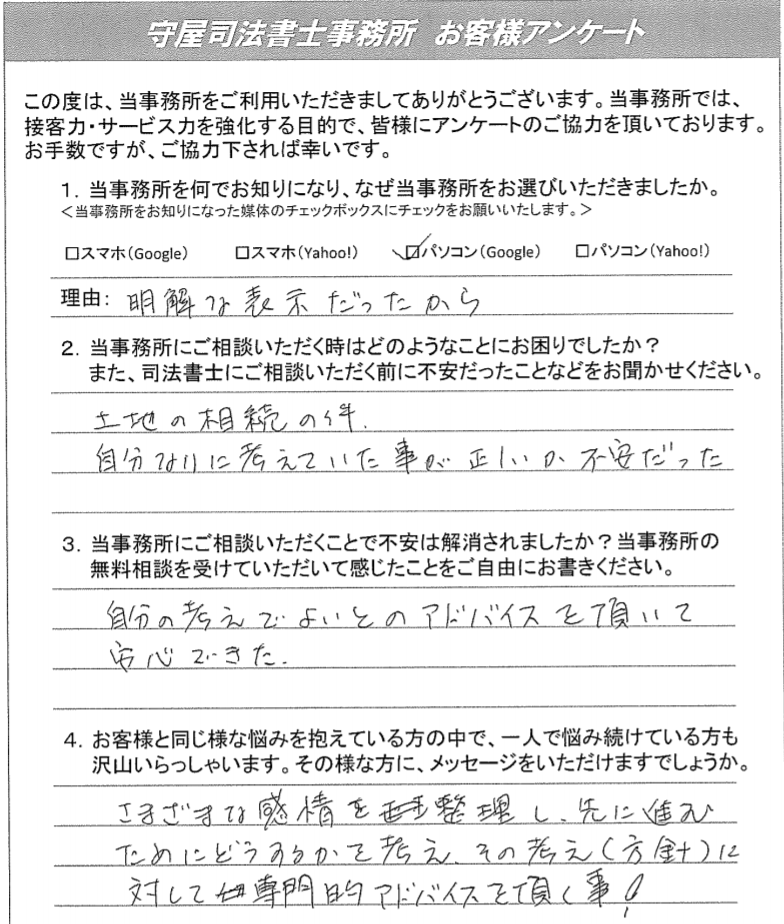 守屋司法書士事務所 お客様アンケート
この度は、当事務所をご利用いただきましてありがとうございます。当事務所では、
接客力・サービス力を強化する目的で、皆様にアンケートのご協力を頂いております。
お手数ですが、ご協力下されば幸いです。
1. 当事務所を何でお知りになり、なぜ当事務所をお選びいただきましたか。
＜当事務所をお知りになった媒体のチェックボックスにチェックをお願いいたします。＞
□スマホ(Google) □スマホ(Yahoo!) ☑パソコン(Google) □パソコン(Yahoo!)
理由: 明解な表示だったから
2. 当事務所にご相談いただく時はどのようなことにお困りでしたか?
また、司法書士にご相談いただく前に不安だったことなどをお聞かせください。
土地の相続の件.
自分なりに考えていた事が正しいか不安だった
3. 当事務所にご相談いただくことで不安は解消されましたか?当事務所の
無料相談を受けていただいて感じたことをご自由にお書きください。
自分の考えでよいとのアドバイスを頂いて
安心できた.
4. お客様と同じ様な悩みを抱えている方の中で、一人で悩み続けている方も
沢山いらっしゃいます。その様な方に、メッセージをいただけますでしょうか。
さまざまな感情を整理し、先に進む
ためにどうするかを考え、その考え(方針)に
対して専門的アドバイスを頂く事!